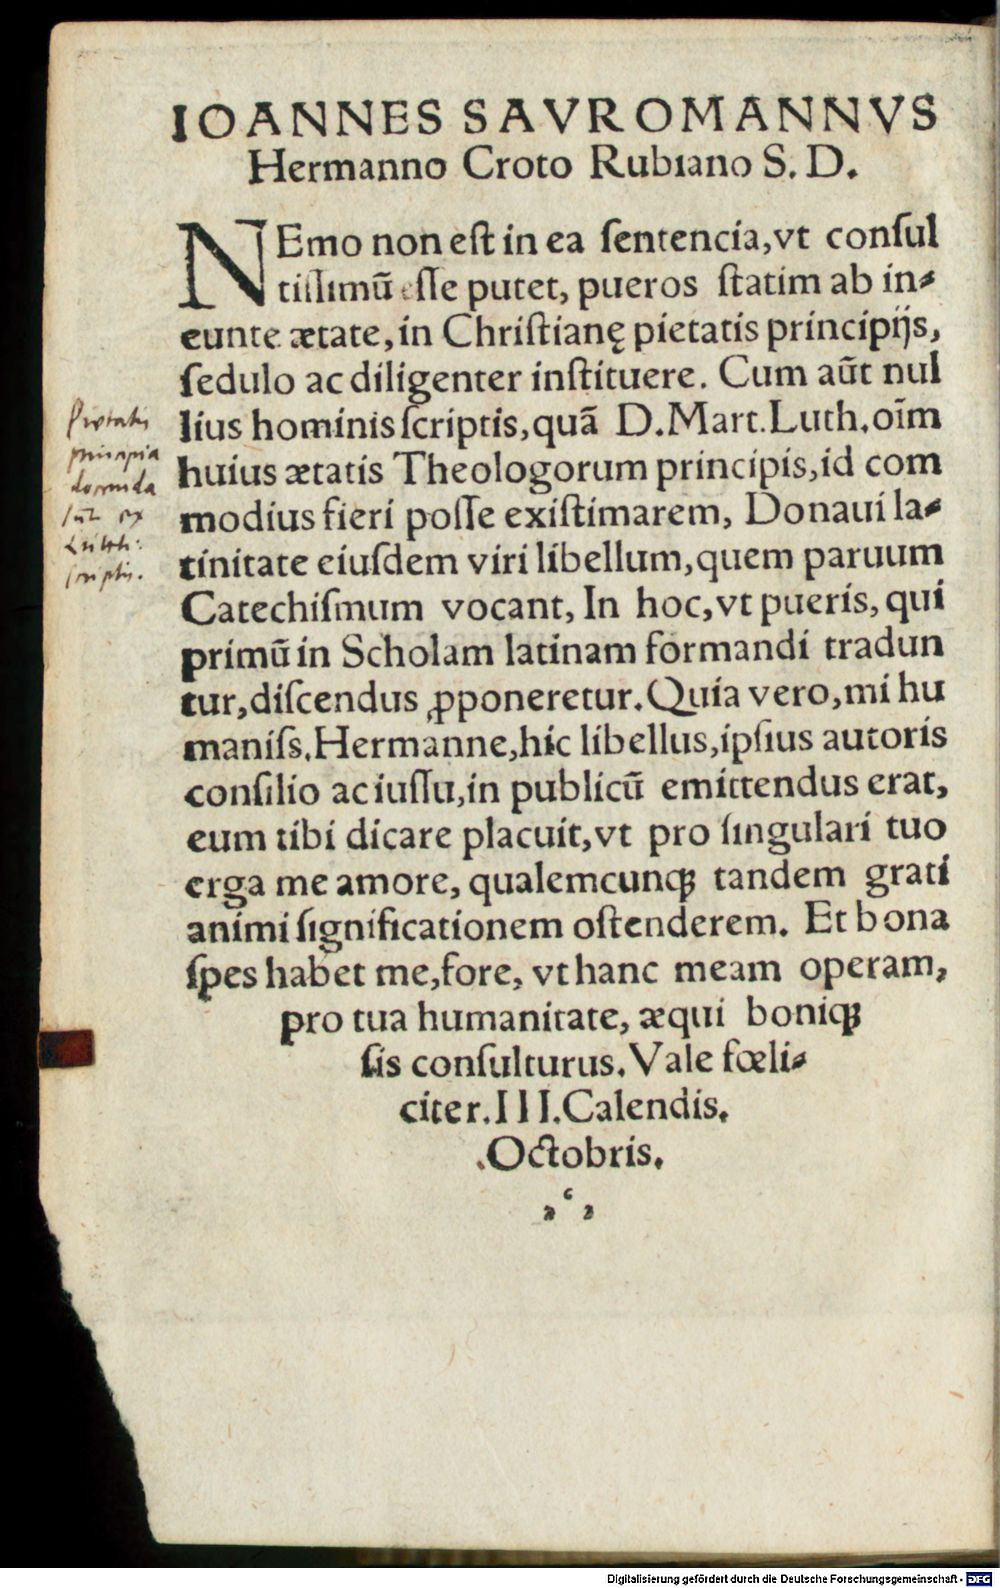 IOANNES SAVROMANNVS
Hermanno Croto Rubiano S. D.
NEmo non eſt in ea ſentencia, vt conſul
tiſſimū eſſe putet, pueros ſtatim ab in⸗
eunte ætate, in Chriſtianę pietatis principijs,
ſedulo ac diligenter inſtituere. Cum aūt nul
lius hominis ſcriptis, quā D. Mart. Luth. oīm
huius ætatis Theologorum principis, id com
modius fieri poſſe exiſtimarem, Donaui la⸗
tinitate eiuſdem viri libellum, quem paruum
Catechiſmum vocant, In hoc, vt pueris, qui
primū in Scholam latinam formandi tradun
tur, diſcendus ꝓponeretur. Quia vero, mi hu
maniſs. Hermanne, hic libellus, ipſius autoris
conſilio ac iuſſu, in publicū emittendus erat,
eum tibi dicare placuit, vt pro ſingulari tuo
erga me amore, qualemcunqꝫ tandem grati
animi ſignificationem oſtenderem. Et bona
ſpes habet me, fore, vt hanc meam operam,
pro tua humanitate, æqui boniqꝫ
ſis conſulturus. Vale fœli⸗
citer. III. Calendis.
.Octobris.
Pietatis
principia
docenda
sūt ex
Luth:
scriptis.
Digitalisierung gefördert durch die Deutsche Forschungsgemeinschaft - DFG